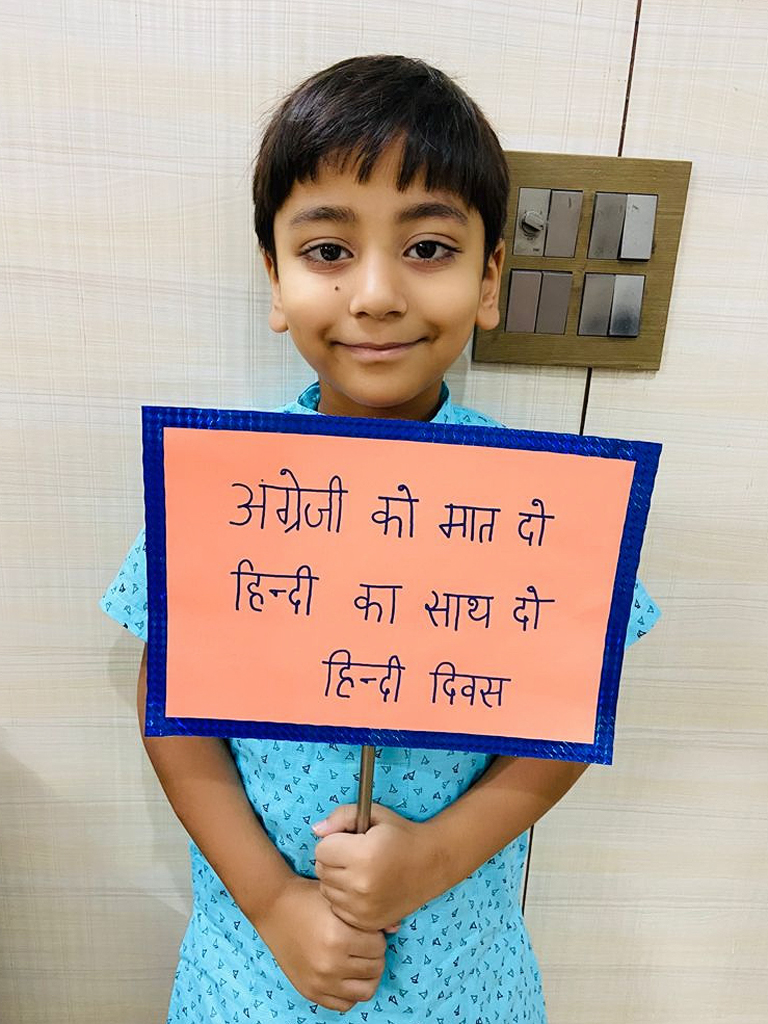 अंग्रेजी को मात दो
हिन्दी का साथ दो
हिन्दी दिवस